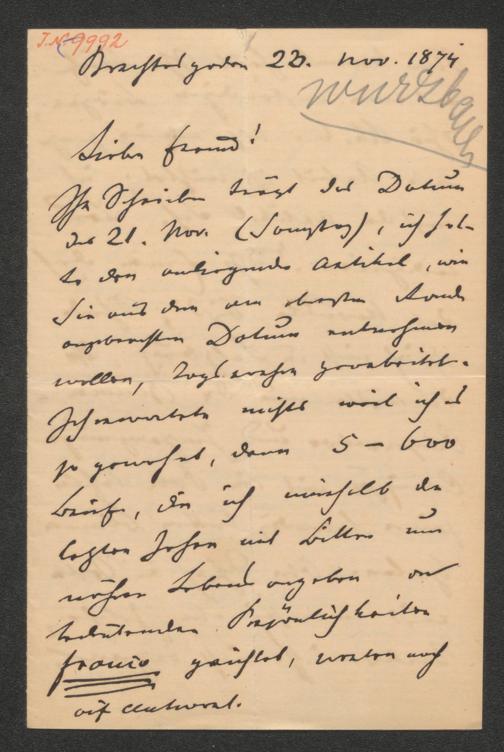 I.N. 9992
Berchtesgaden 23. Nov. 1874
Wurzbach
Lieber Freund!
Ihr Schreiben trägt das Datum
des 21. Nov. (Samstag), ich hat-
te den anliegenden Artikel, wie
Sie aus dem am obersten Rande
angebrachten Datum entnehmen
wollen, Tags vorher gearbeitet.
Ich erwartete nichts weil ich es
so gewohnt, denn 5 – 600
Briefe, die ich innerhalb der
letzten Jahre mit Bitten um
nähere Lebensangaben an
bedeutenden Persönlichkeiten
franco gerichtet, warten noch
auf Antwort.